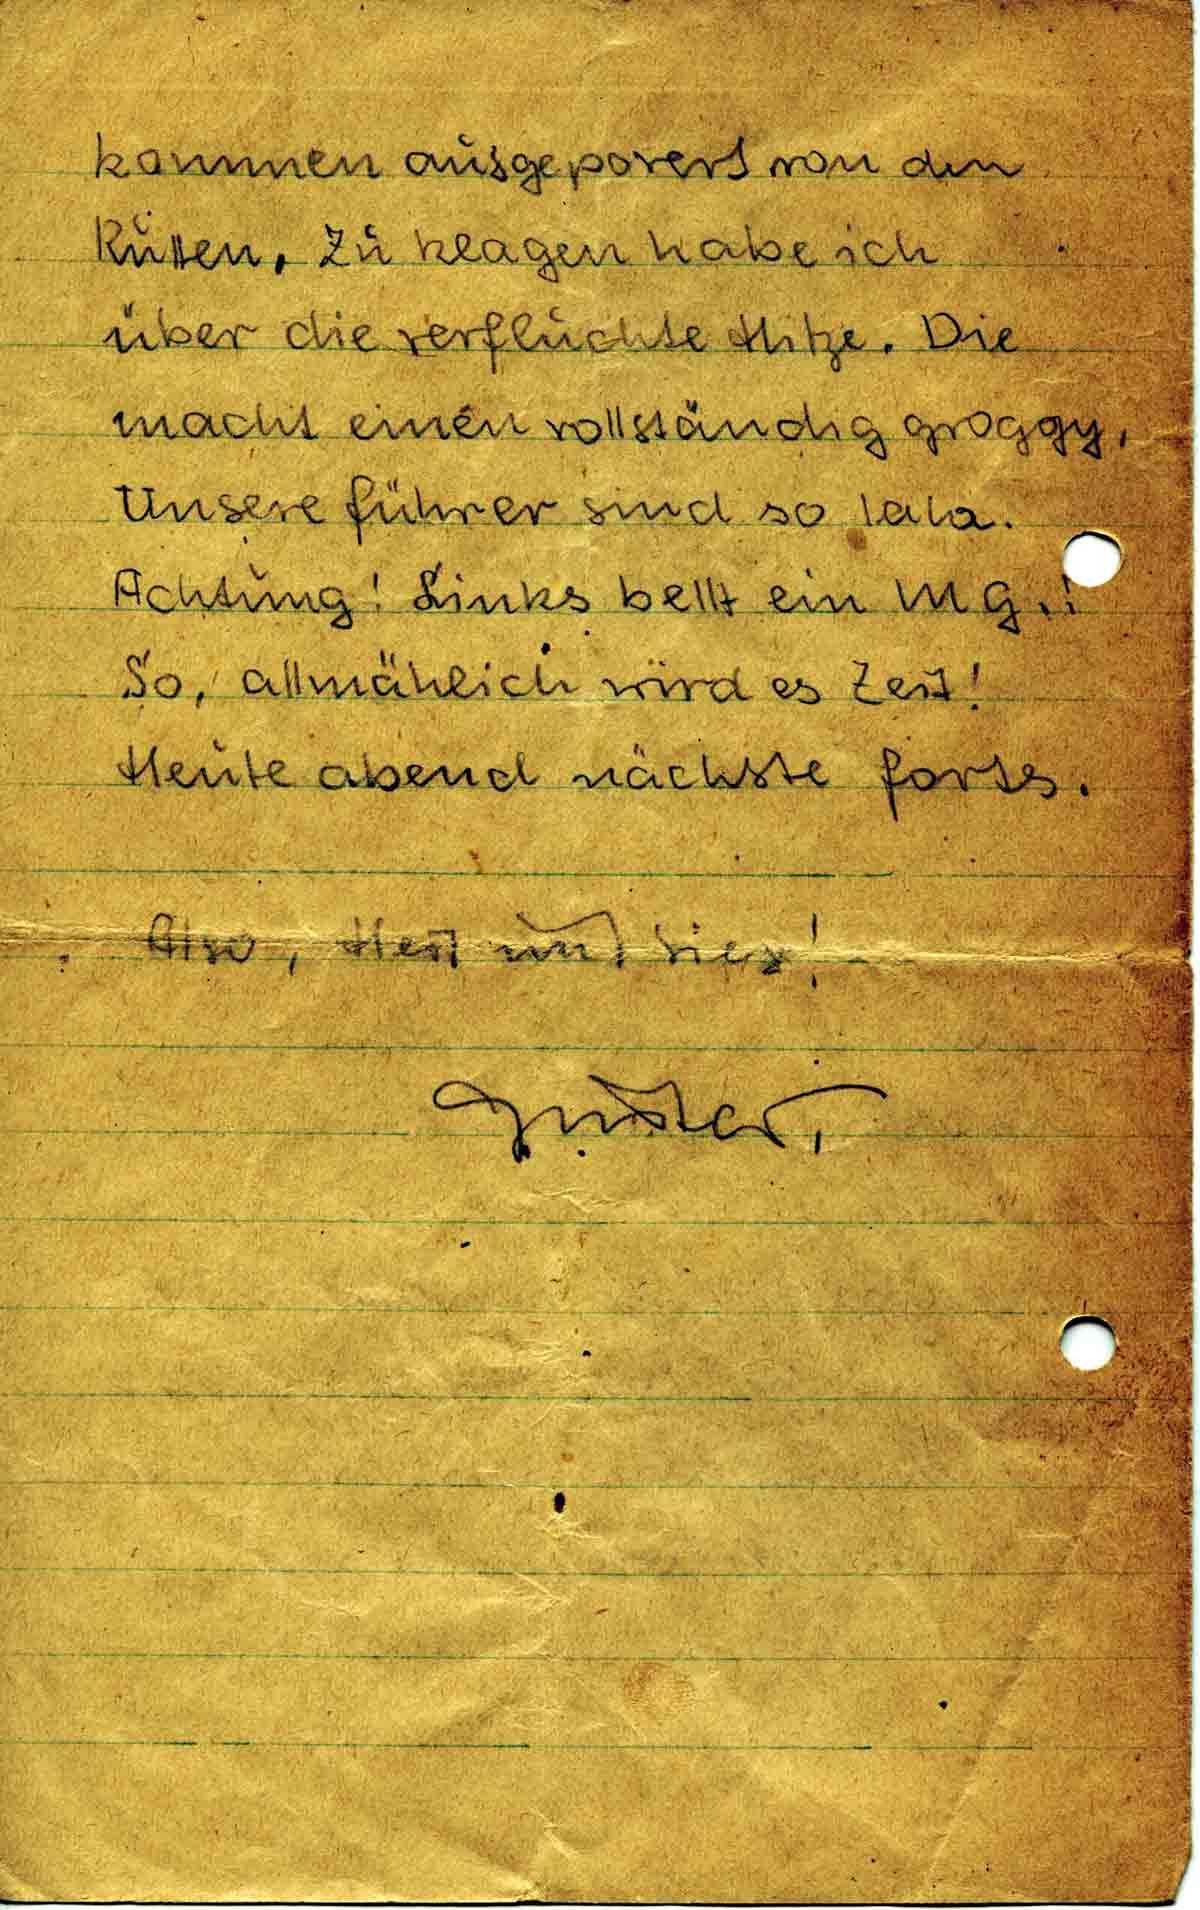 kommen ausgepovert von den
Rüssen. Zu klagen habe ich
über die verfluchte Hitze. Die
macht einen vollständig groggy.
Unsere Führer sind so lala.
Achtung! Links bellt ein MG.!
So, allmählich wird es Zeit!
Heute abend nächste Forts.
Also, Heil und Sieg!